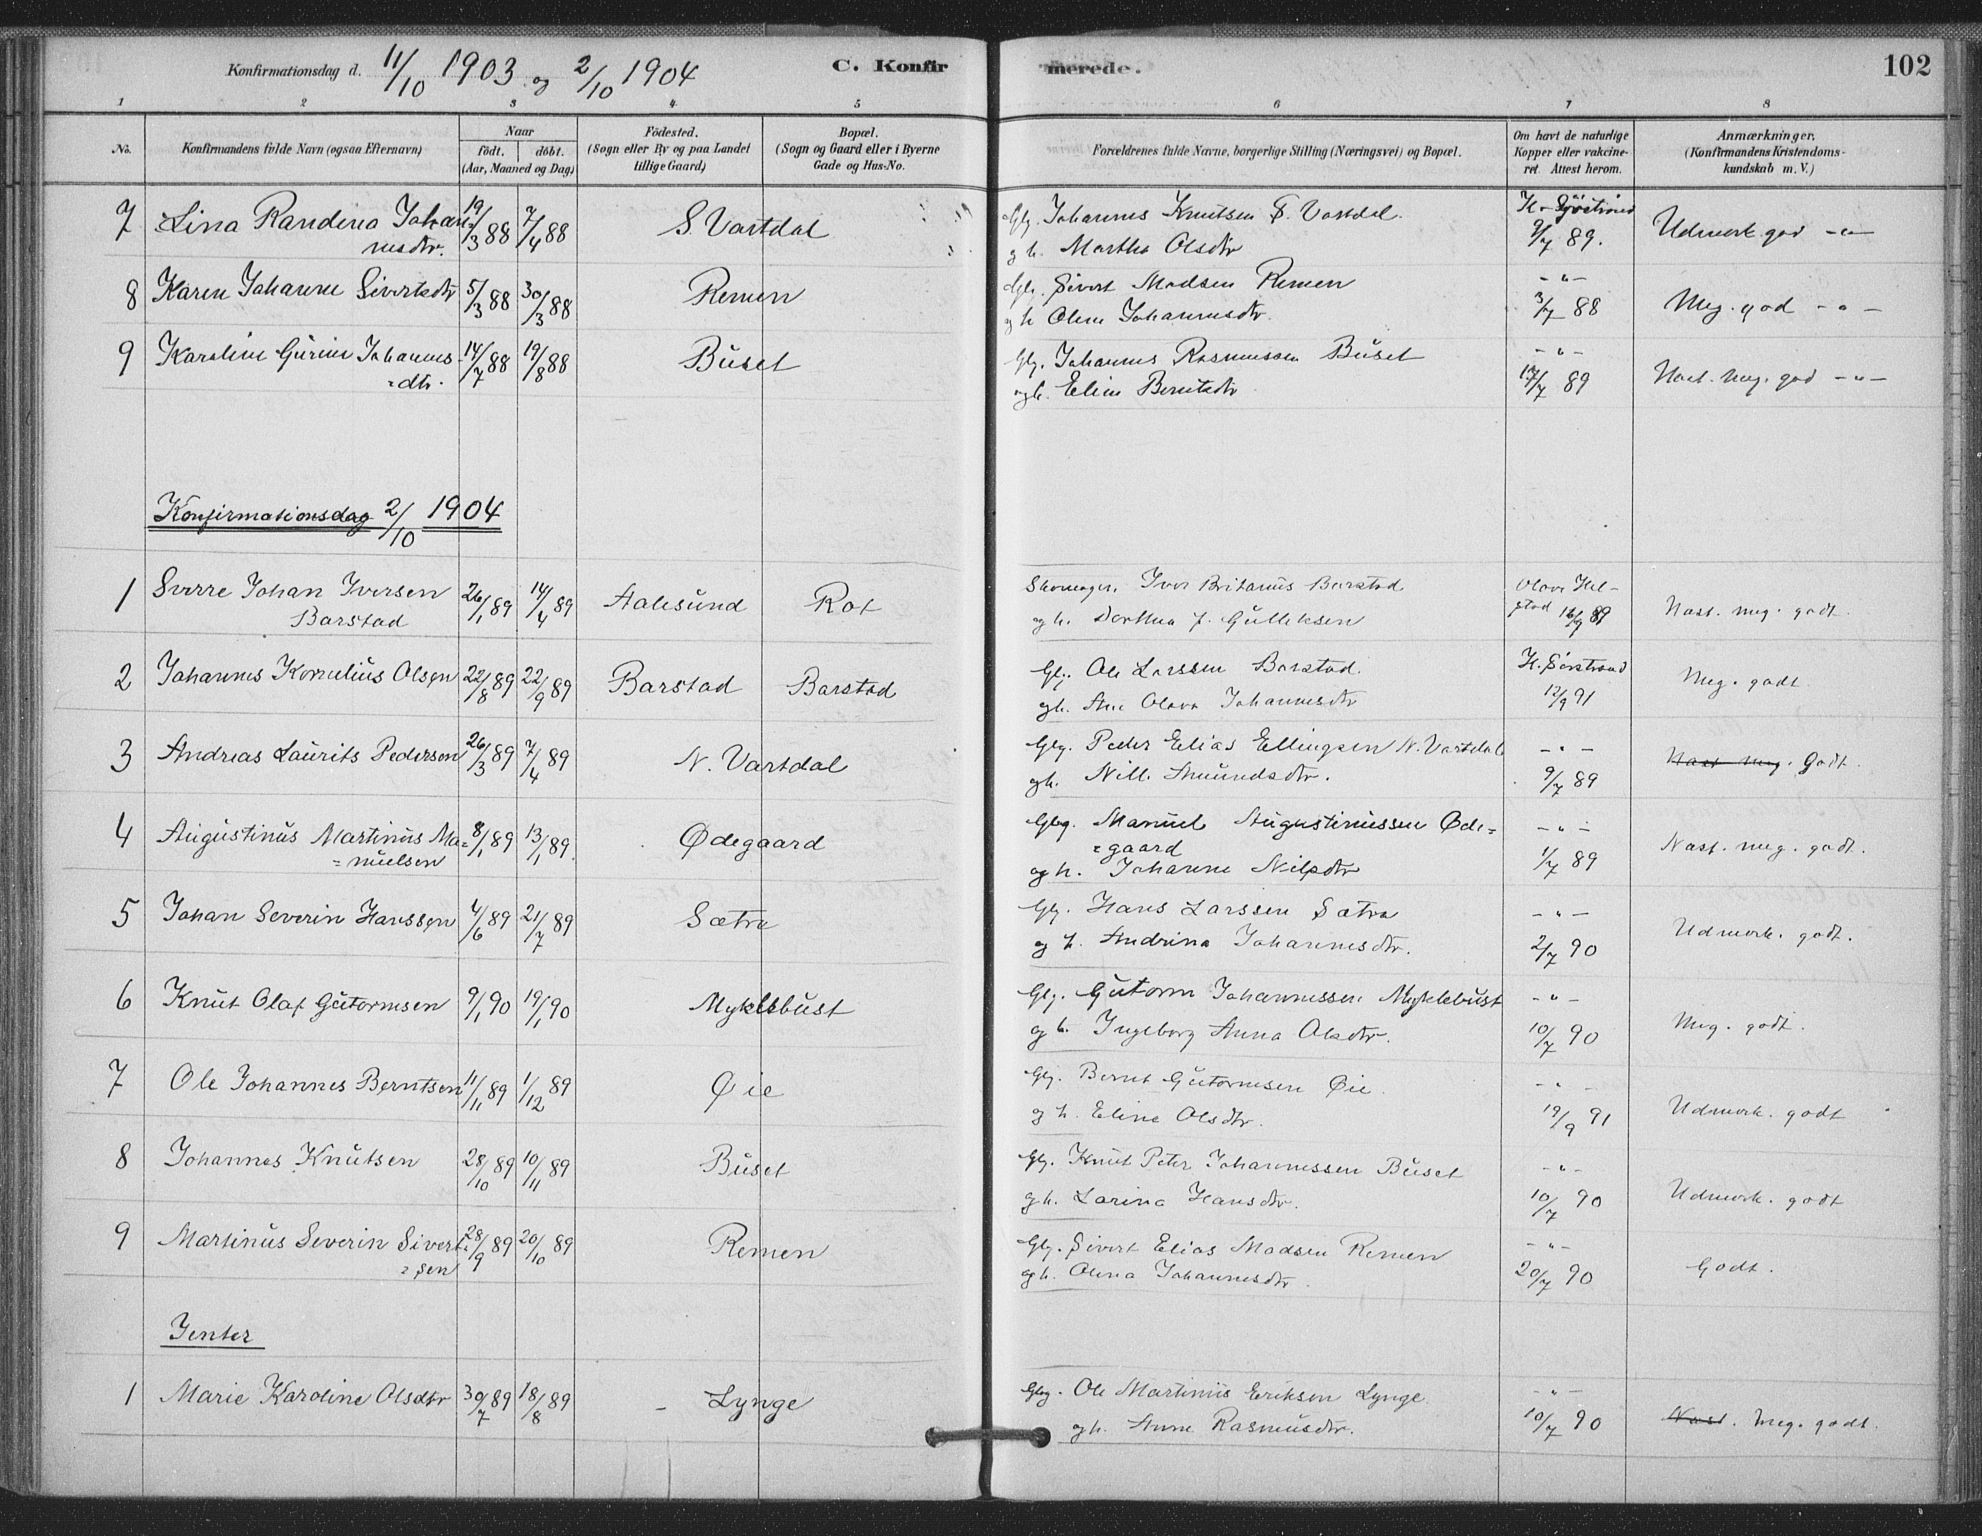 Konfirmationsdag d. 11/10 1903 og 2/10 1904
C. Konfirmerede.
102
1 2 3 4 5 6 7 8
No. Konfirmandens fulde Navn (ogsaa Efternavn) Naar födt. döbt. (Aar, Maaned og Dag) Födested. (Sogn eller By og paa Landet tillige Gaard) Bopæl. (Sogn og Gaard eller i Byerne Gade og Hus-No. Forældrenes fulde Navne, borgerlige Stilling (Næringsvei) og Bopæl. Om havt de naturlige Kopper eller vakcineret. Attest herom. Anmærkninger. (Konfirmandens Kristendomskundskab m. V.)
7 Lina Randena Johan= 19/3 88 7/4 88 S. Vartdal Gbr. Johannes Knutsen S. Vartdal H.
nesdtr. og h. Martha Olsdtr 9/7 89. Udmerk. god -"-
8 Karen Johanne Sivertsdtr 5/3 88 30/3 88 Remen Gbr. Sivert Madsen Remen -"-
og h Olene Johannesdtr. 3/7 88 Meg. god -"-
9 Karoline Gurine Johannes 14/7 88 19/8 88 Buset Gbr. Johannes Rasmussen Buset -"-
=dtr. og h. Eline Berntsdtr 17/7 89 Næst. meg. god -"-
Konfirmationsdag 2/10 1904
1 Sverre Johan Iversen 26/1 89 14/4 89 Aalesund Rot Skomager. Iver Britanus Barstad Olav Hel-
Barstad og h. Dorthea J. Gulleksen gstad 16/9 89 Næst. meg. godt.
2 Johannes Kornelius Olsen 22/8 89 22/9 89 Barstad Barstad Gbr. Ole Larssen Barstad. H. Sørstrand
og h. Ane Olava Johannesdtr 12/9 91 Meg. godt
3 Andreas Laurits Pedersen 26/3 89 7/4 89 N. Vartdal Gbr. Peder Elias Ellingsen N. Vartdal -"-
og h. Nille Amundsdtr. 9/7 89 Næst meg. Godt.
4 Augustinus Martinus Ma= 8/1 89 13/1 89. Ødegaard Gbr. Manuel Augustinussen Øde= -"-
=nuelsen =gaard
og h. Johanne Nilsdtr 1/7 89 Næst. meg. godt.
5 Johan Severin Hanssen 4/6 89 21/7 89 Sætre Gbr. Hans Larssen Sætre -"-
og h. Andrina Johannesdtr. 2/7 90 Udmerk. godt.
6 Knut Olaf Gutormsen 9/1 90 19/1 90 Myklebust Gbr. Gutorm Johannessen Myklebust -"-
og h. Ingeborg Anna Olsdtr. 10/7 90 Meg. godt.
7 Ole Johannes Berntsen 11/11 89 1/12 89 Øie Gbr. Bernt Gutormsen Øie. -"-
og h. Eline Olsdtr. 19/9 91 Udmerk. godt
8 Johannes Knutsen 28/10 89 10/11 89 Buset Gbr. Knut Peter Johannessen Buset -"-
og h. Larina Hansdtr. 10/7 90 Udmerk. godt
9 Martinus Severin Sivert= 28/9 89 20/10 89 Remen Gbr. Sivert Elias Madsen Remen -"-
=sen og h. Olena Johannesdtr. 20/7 90 Godt.
Jenter
1 Marie Karoline Olsdtr 30/7 89 18/8 89 Lynge Gbr. Ole Martinus Eriksen Lynge -"-
og h. Anne Rasmusdtr. 10/7 90 Næst. meg. godt.